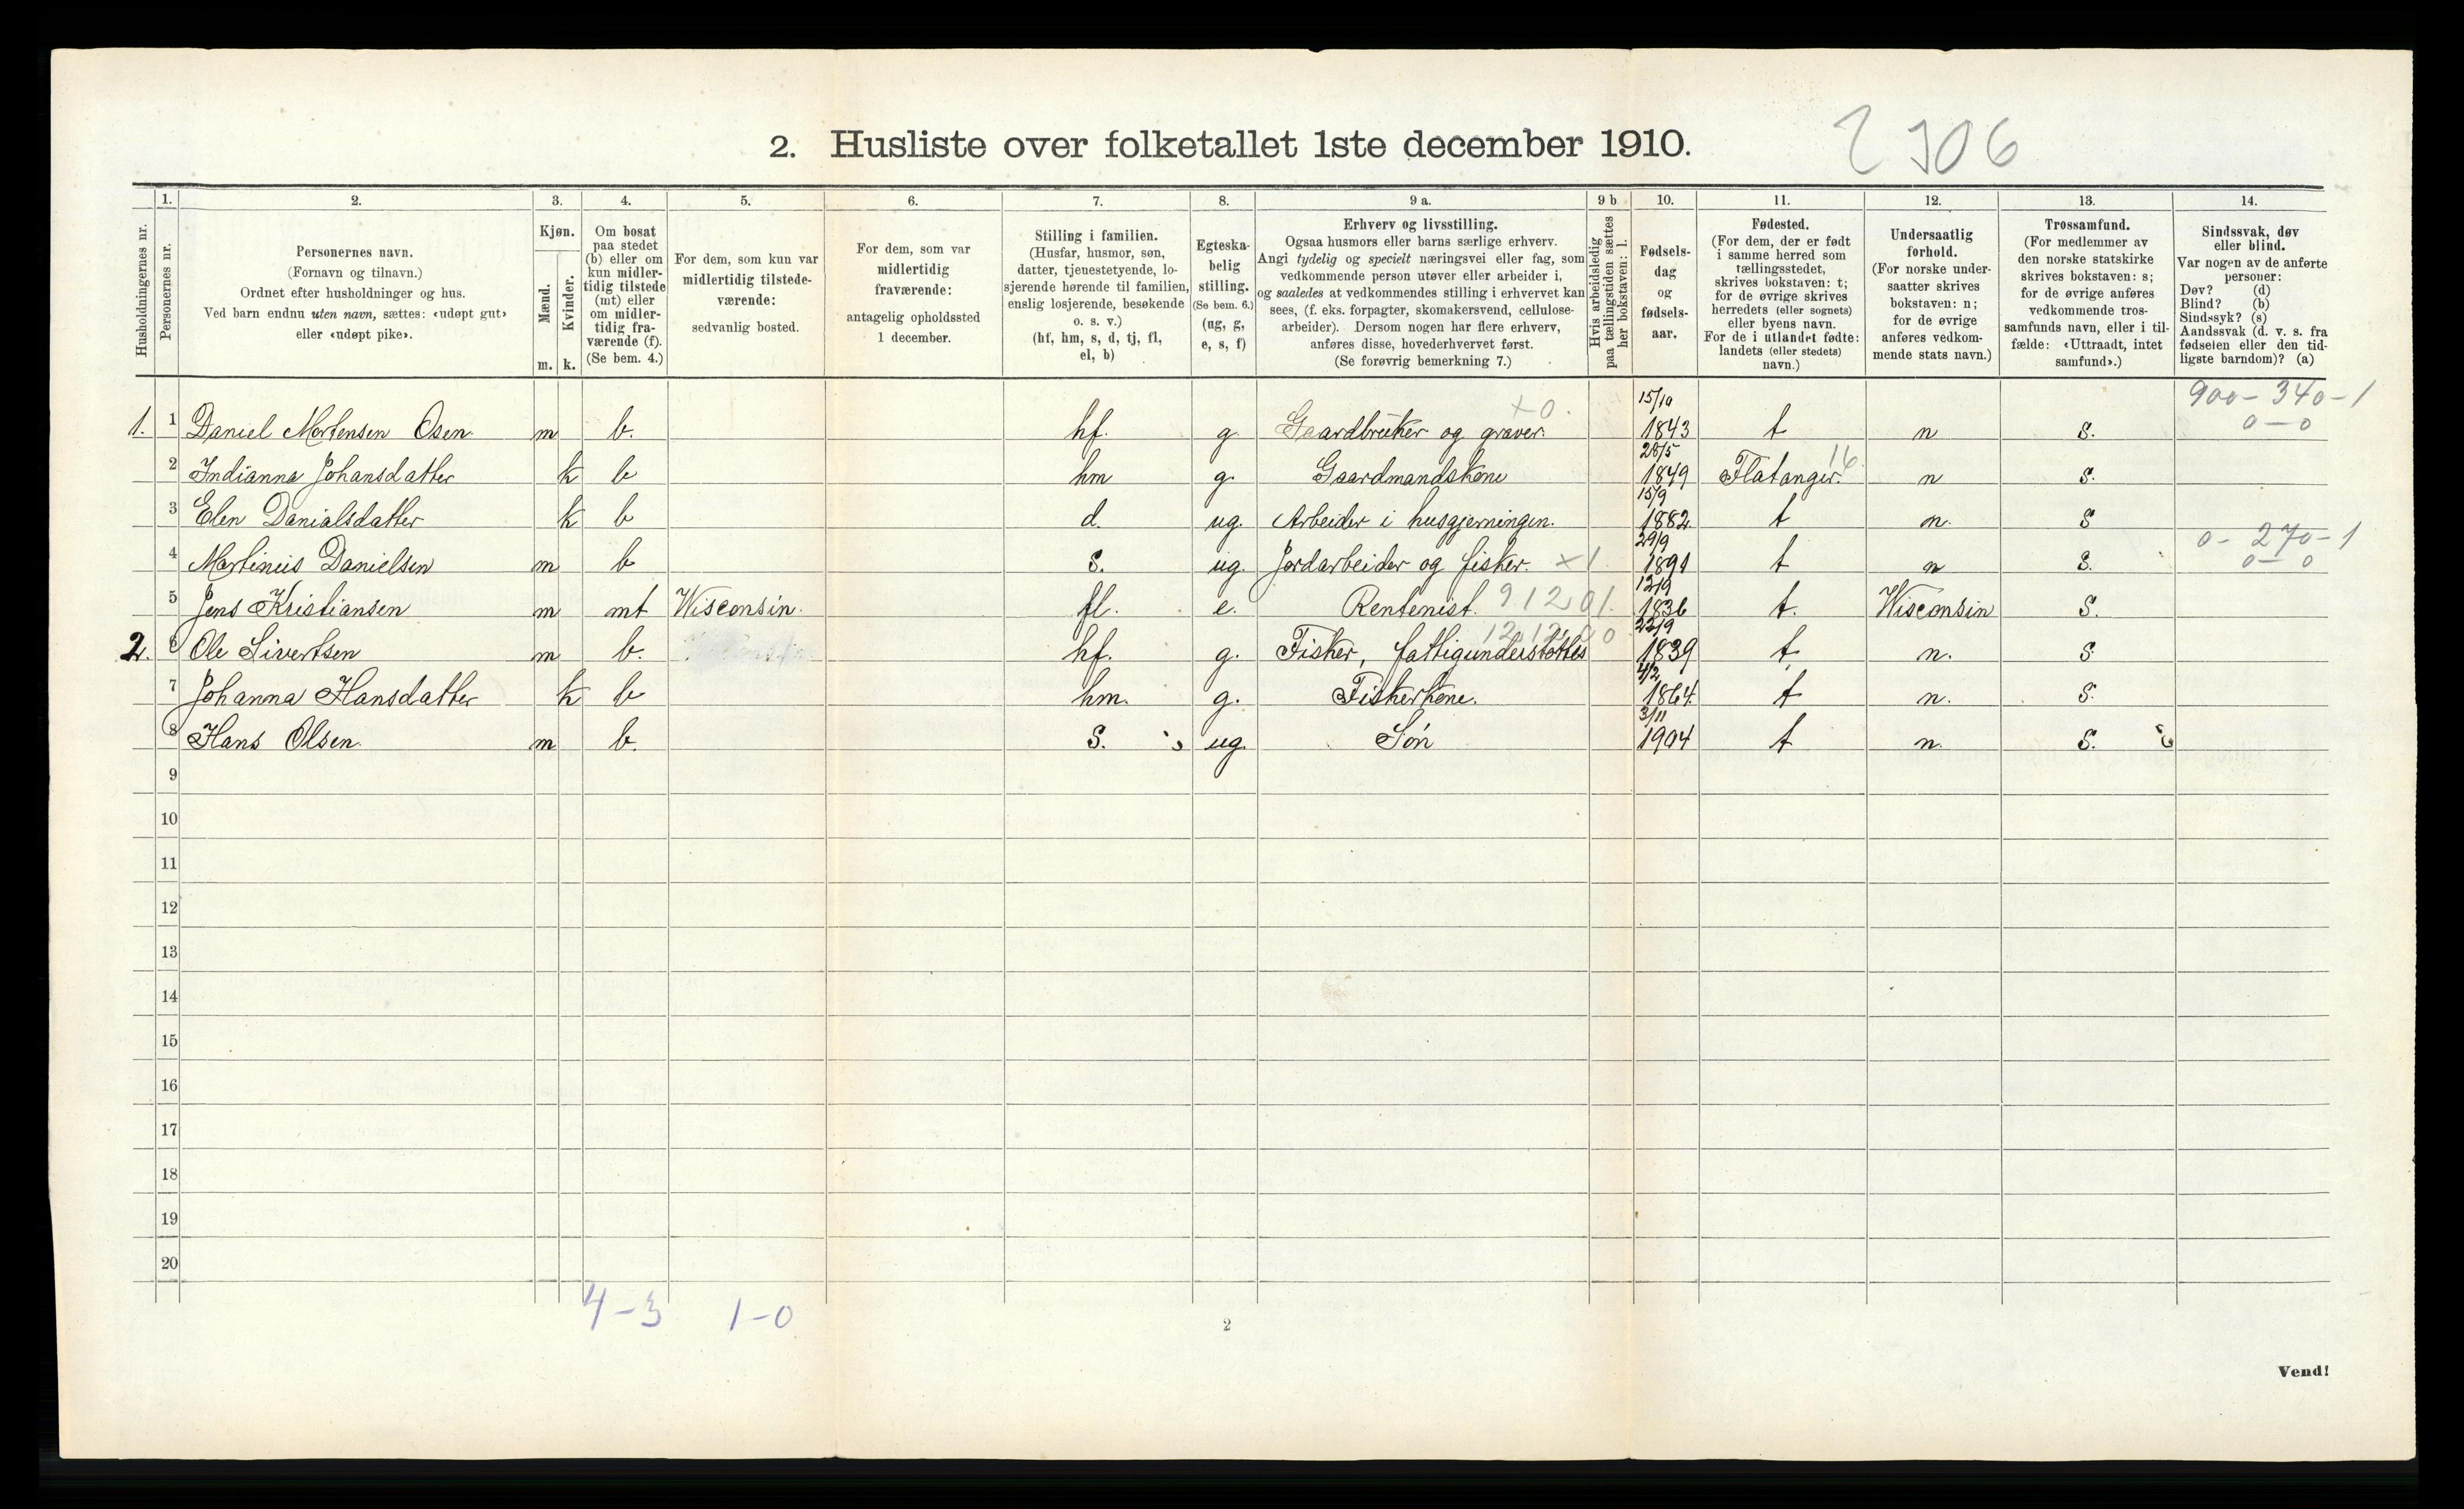 2. Husliste over folketallet 1ste december 1910.
2906
Husholdningernes nr.
1.
Personernes nr.
2.
Personernes navn.
(Fornavn og tilnavn.)
Ordnet efter husholdninger og hus.
Ved barn endnu uten navn, sættes: «udøpt gut»
eller «udøpt pike».
3.
Kjøn.
Mænd.
Kvinder.
m. k.
4.
Om bosat
paa stedet
(b) eller om
kun midler-
tidig tilstede
(mt) eller
om midler-
tidig fra-
værende (f).
(Se bem. 4.)
5.
For dem, som kun var
midlertidig tilstede-
værende:
sedvanlig bosted.
6.
For dem, som var
midlertidig
fraværende:
antagelig opholdssted
1 december.
7.
Stilling i familien.
(Husfar, husmor, søn,
datter, tjenestetyende, lo-
sjerende hørende til familien,
enslig losjerende, besøkende
o. s. v.)
(hf, hm, s, d, tj, fl,
el, b)
8.
Egteska-
belig
stilling.
(Se bem. 6.)
(ug, g,
e, s, f)
9 a.
Erhverv og livsstilling.
Ogsaa husmors eller barns særlige erhverv.
Angi tydelig og specielt næringsvei eller fag, som
vedkommende person utøver eller arbeider i,
og saaledes at vedkommendes stilling i erhvervet kan
sees, (f. eks. forpagter, skomakersvend, cellulose-
arbeider). Dersom nogen har flere erhverv,
anføres disse, hovederhvervet først.
(Se forøvrig bemerkning 7.)
9 b
Hvis arbeidsledig
paa tællingstiden sættes
her bokstaven: l.
10.
Fødsels-
dag
og
fødsels-
aar.
11.
Fødested.
(For dem, der er født
i samme herred som
tællingsstedet,
skrives bokstaven: t;
for de øvrige skrives
herredets (eller sognets)
eller byens navn.
For de i utlandet fødte:
landets (eller stedets)
navn.)
12.
Undersaatlig
forhold.
(For norske under-
saatter skrives
bokstaven: n;
for de øvrige
anføres vedkom-
mende stats navn.)
13.
Trossamfund.
(For medlemmer av
den norske statskirke
skrives bokstaven: s;
for de øvrige anføres
vedkommende tros-
samfunds navn, eller i til-
fælde: «Uttraadt, intet
samfund».)
14.
Sindssvak, døv
eller blind.
Var nogen av de anførte
personer:
Døv? (d)
Blind? (b)
Sindssyk? (s)
Aandssvak (d. v. s. fra
fødselen eller den tid-
ligste barndom)? (a)
900 - 340 - 1
0 - 0
1. 1 Daniel Mortensen Osen. m b. hf. g. Gaardbruker og graver. +0. 15/10 1843 t n S.
2 Indianna Johansdatter k b hm g. Gaardmandskone 28/5 1849 Flatanger. 16. n S.
3 Elen Danialsdatter k b d. ug. Arbeider i husgjerningen. 15/9 1882 t n. S
0 - 270 - 1
0 - 0
4 Martinius Danielsen m b S. ug. Jordarbeider og fisker. +1. 29/9 1891 t n S.
5 Jens Kristiansen m mt Wisconsin. fl. e. Rentenist. 912.01. 12/9 1836 t. Wisconsin S.
2. 6 Ole Sivertsen m b. hf. g. Fisker, fattigunderstøttes 22/9 1839 t n. S
7 Johanna Hansdatter k b hm. g. Fiskerkone. 4/2 1864. t n. S.
8 Hans Olsen. m b. S. ug. Søn 3/11 1904 t n. S.
9
10
11
12
13
14
15
16
17
18
19
20
4-3 1-0
2
Vend!